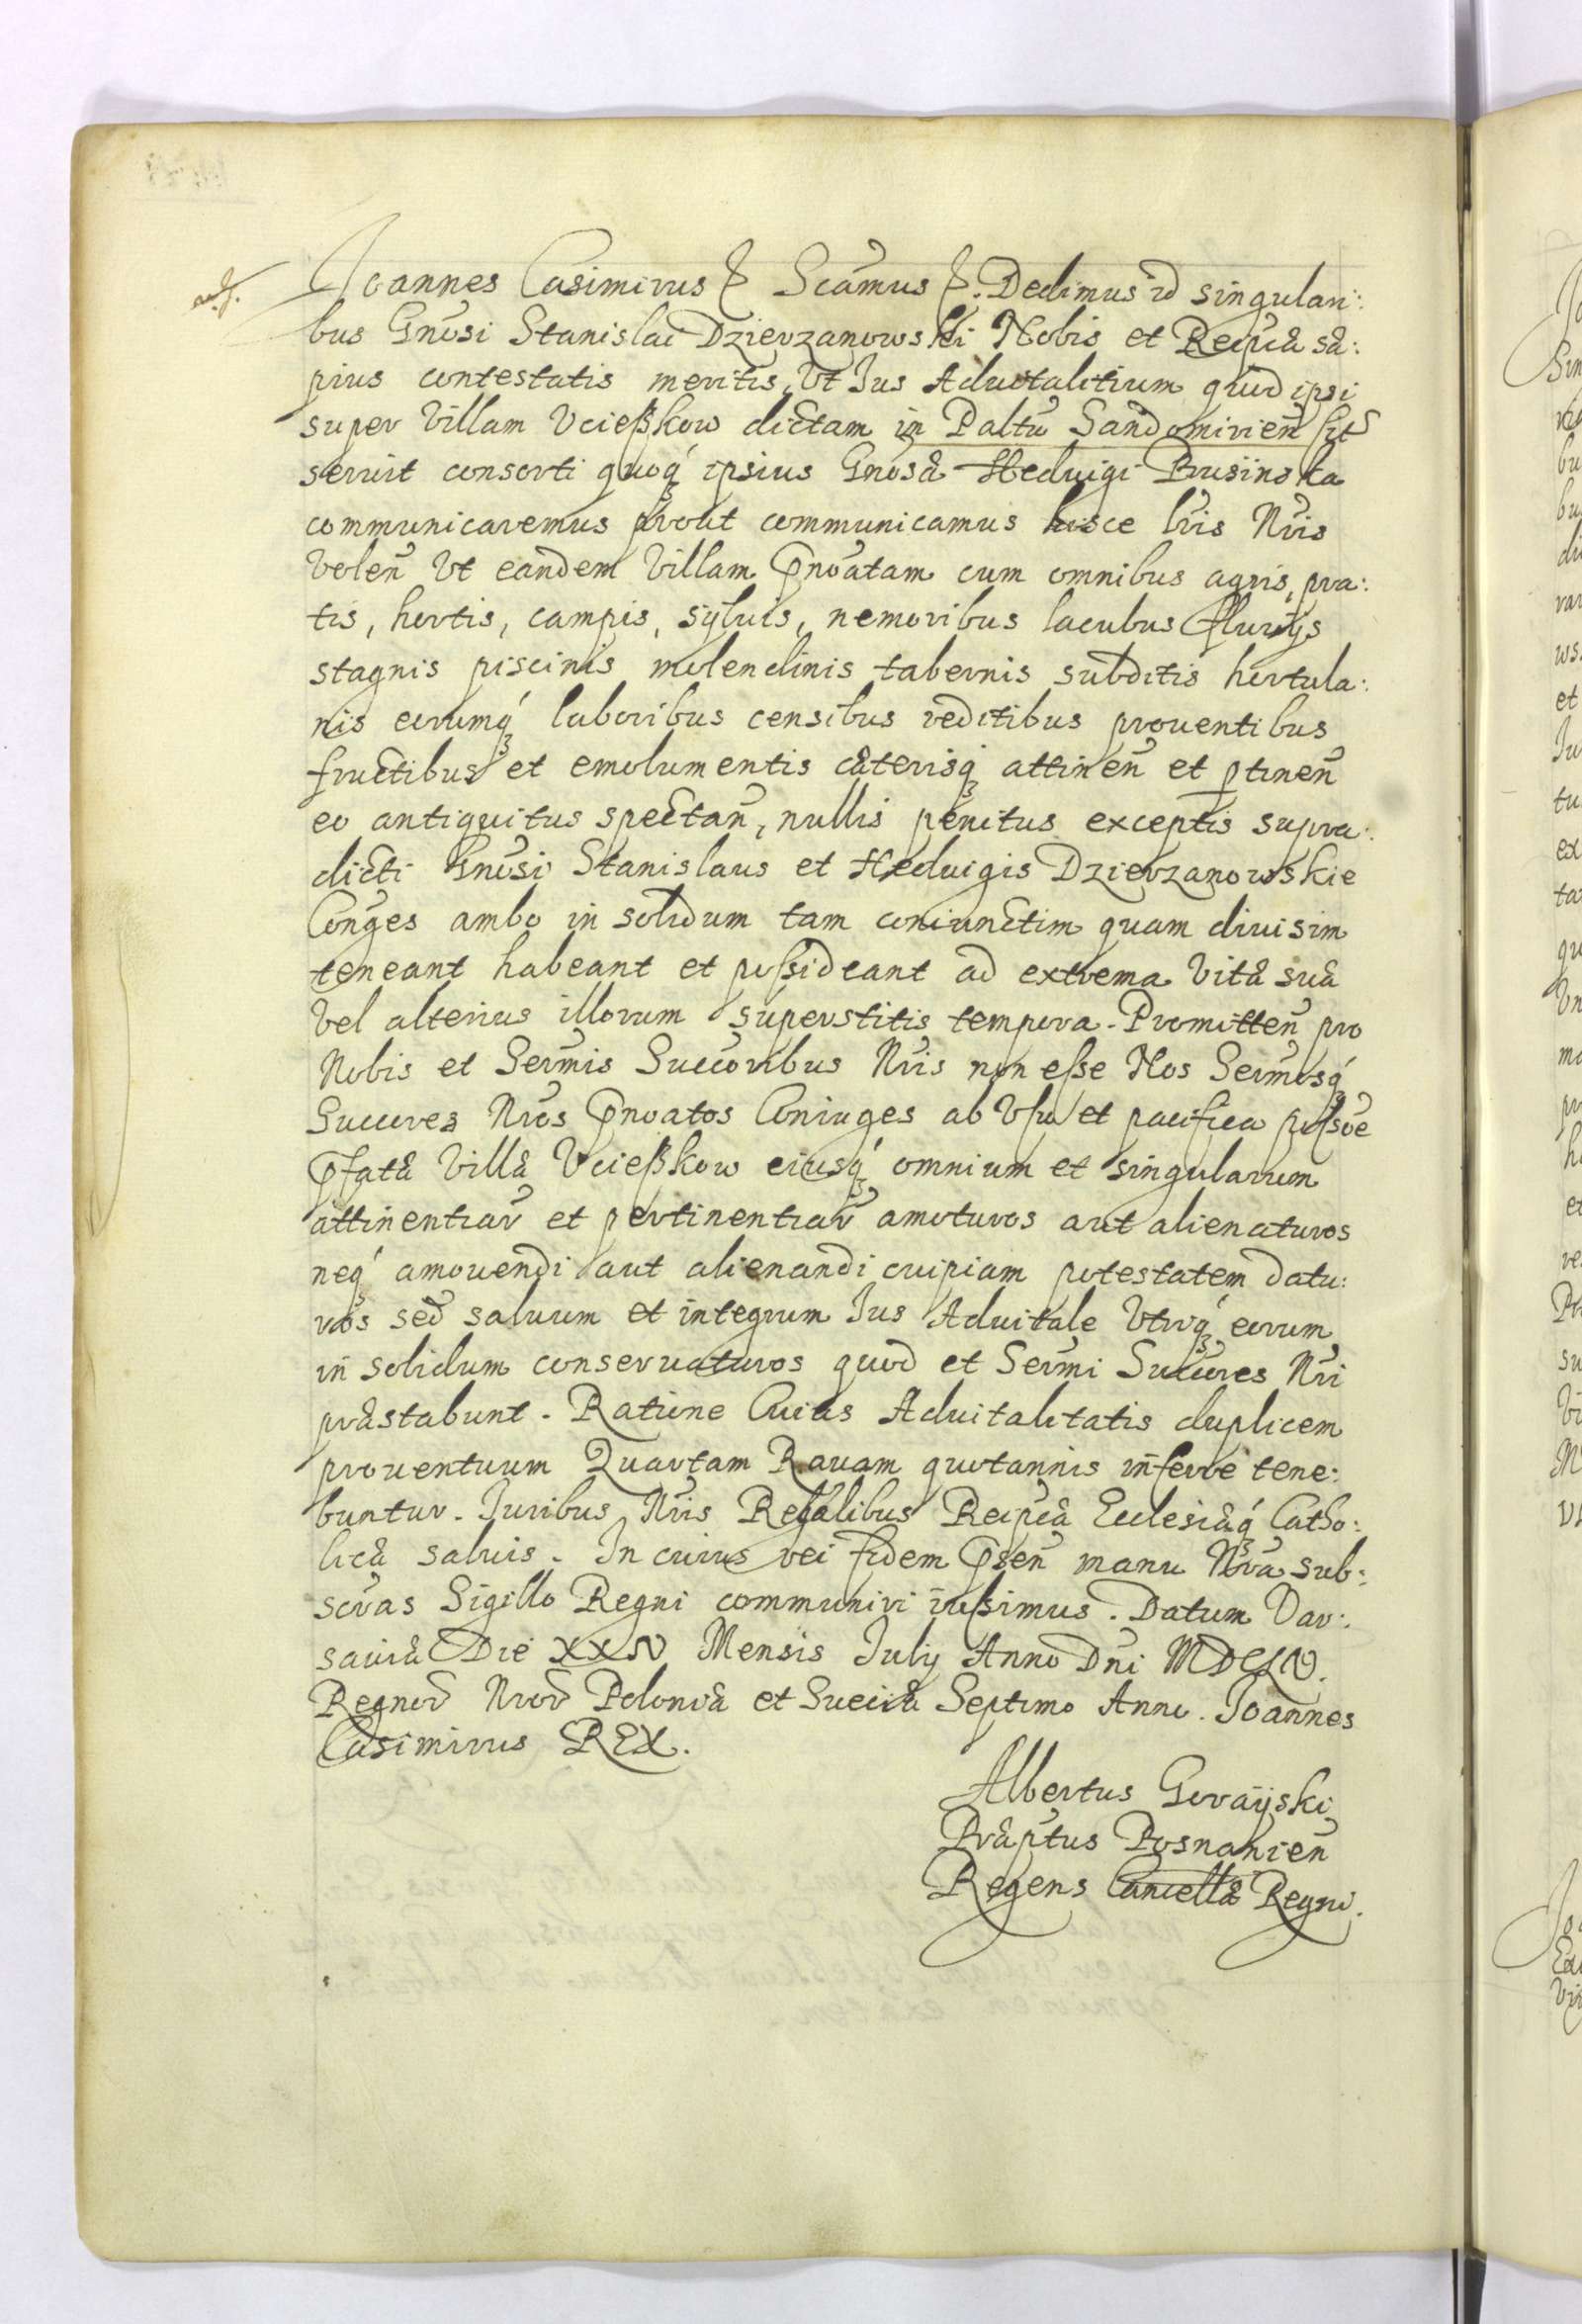 Joannes Casimirus &. Scamus &. Dedimus id singulari:
bus Gnosi Stanislai Dzierzanowski Nobis et Reipcæ sæ:
pius contestatis meritis, Vt Ius Aduitalitium quod ipsi
super Villam Vcießkow dictam in Paltu Sandomirien sit
seruit consorti quoq ipsius Gnosæ Heduigi Brusinska
communicaremus prout communicamus hisce lris Nris
Volen Vt eandem Villam Pnoatam cum omnibus agris, pra:
tis, hortis, campis, syluis, nemoribus lacubus fluuijs
stagnis piscinis molendinis tabernis subditis hortula:
nis eorumq laboribus censibus reditibus prouentibus
fructibus et emolumentis cæterisq attinen et ptinen
eo antiquitus spectan, nullis penitus exceptis supra:
dicti Gnosi Stanislaus et Heduigis Dzierzanowskie
Conges ambo in solidum tam coniunctim quam diuisim
teneant habeant et possideant ad extrema Vitæ suæ
Vel alterius illorum superstitis tempora. Promitten pro
Nobis et Sermis Succoribus Nris non esse Nos Sermosq
Succores Nros Pnoatos Coniuges ab Vsu et pacifica possoe
Pfatæ Villæ Vcießkow eiusq omnium et singularum
attinentiar et pertinentiar amoturos aut alienaturos
neq amouendi aut alienandi cuipiam potestatem datu:
ros sed saluum et integrum Ius Aduitale Vtriq eorum
in solidum conseruaturos quod et Sermi Succores Nri
præstabunt. Ratione Cuius Aduitalitatis duplicem
prouentuum Quartam Rauam quotannis inferre tene:
buntur. Iuribus Nris Regalibus Reipcæ Ecclesiæq Catho:
licæ saluis. In cuius rei fidem Psen manu Nra sub:
scras Sigillo Regni communiri iussimus. Datum Var:
sauiæ Die XXIV Mensis Iulij Anno Dni MDCLIV.
Regnor Nror Poloniæ et Sueciæ Septimo Anno. Joannes
Casimirus REX.
Albertus Gorayski
Præptus Posnanien
Regens Cancellæ Regni.